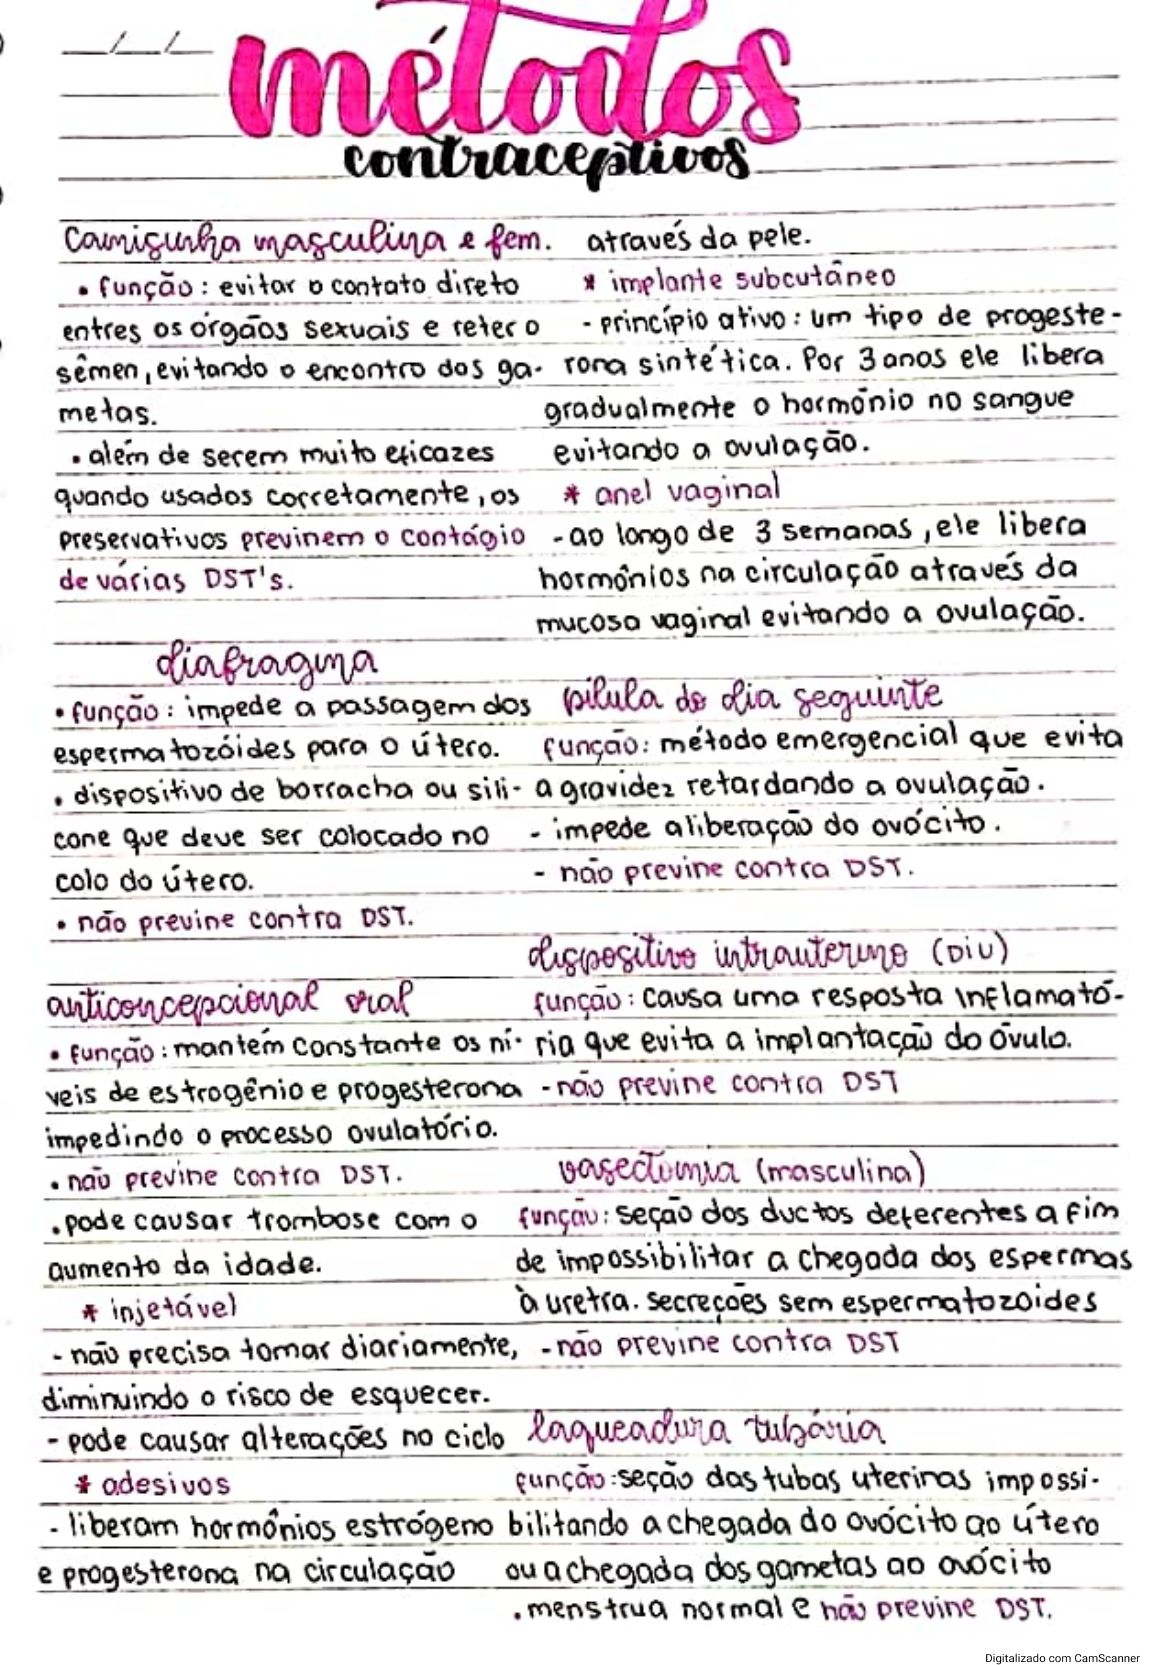 métodos
contraceptivos
camisinha masculina e fem.
• função: evitar o contato direto
entres os órgãos sexuais e reter o
sêmen, evitando o encontro dos ga-
metas.
• além de serem muito eficazes
quando usados corretamente, os
preservativos previnem o contágio
de várias DST's.
diafragma
• função: impede a passagem dos
espermatozóides para o útero.
• dispositivo de borracha ou sili-
cone que deve ser colocado no
colo do útero.
• não previne contra DST.
anticoncepcional oral
• função: mantém constante os ní-
veis de estrogênio e progesterona
impedindo o processo ovulatório.
• não previne contra DST.
• pode causar trombose com o
aumento da idade.
* injetável
- não precisa tomar diariamente,
diminuindo o risco de esquecer.
- pode causar alterações no ciclo
* adesivos
- liberam hormônios estrógeno
e progesterona na circulação
através da pele.
* implante subcutâneo
- princípio ativo: um tipo de progeste-
rona sintética. Por 3 anos ele libera
gradualmente o hormônio no sangue
evitando a ovulação.
* anel vaginal
- ao longo de 3 semanas, ele libera
hormônios na circulação através da
mucosa vaginal evitando a ovulação.
pílula do dia seguinte
função: método emergencial que evita
a gravidez retardando a ovulação.
- impede a liberação do ovócito.
- não previne contra DST.
dispositivo intrauterino (DIU)
função: causa uma resposta inflamató-
ria que evita a implantação do óvulo.
- não previne contra DST
vasectomia (masculina)
função: seção dos ductos deferentes a fim
de impossibilitar a chegada dos espermas
à uretra. secreções sem espermatozoides
- não previne contra DST
laqueadura tubária
função: seção das tubas uterinas impossi-
bilitando a chegada do ovócito ao útero
ou a chegada dos gametas ao ovócito
• menstrua normal e não previne DST.
Digitalizado com CamScanner